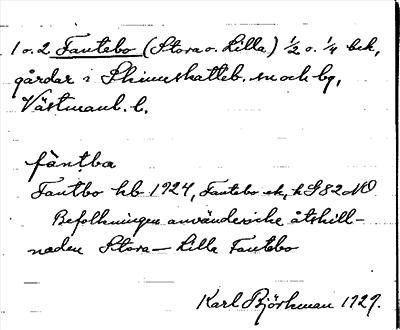 1 o. 2 Fantebo (Stora o. Lilla) 1/2 o. 1/4 bek,
gårdar i Skinnskatteb. sn och bg,
Västmanl. l.
fàntba
Fantbo hb 1924, Fantebo ek, k S 82 NO
Befolkningen använder icke åtskill-
naden Stora – Lilla Fantebo
Karl Björkman 1929.